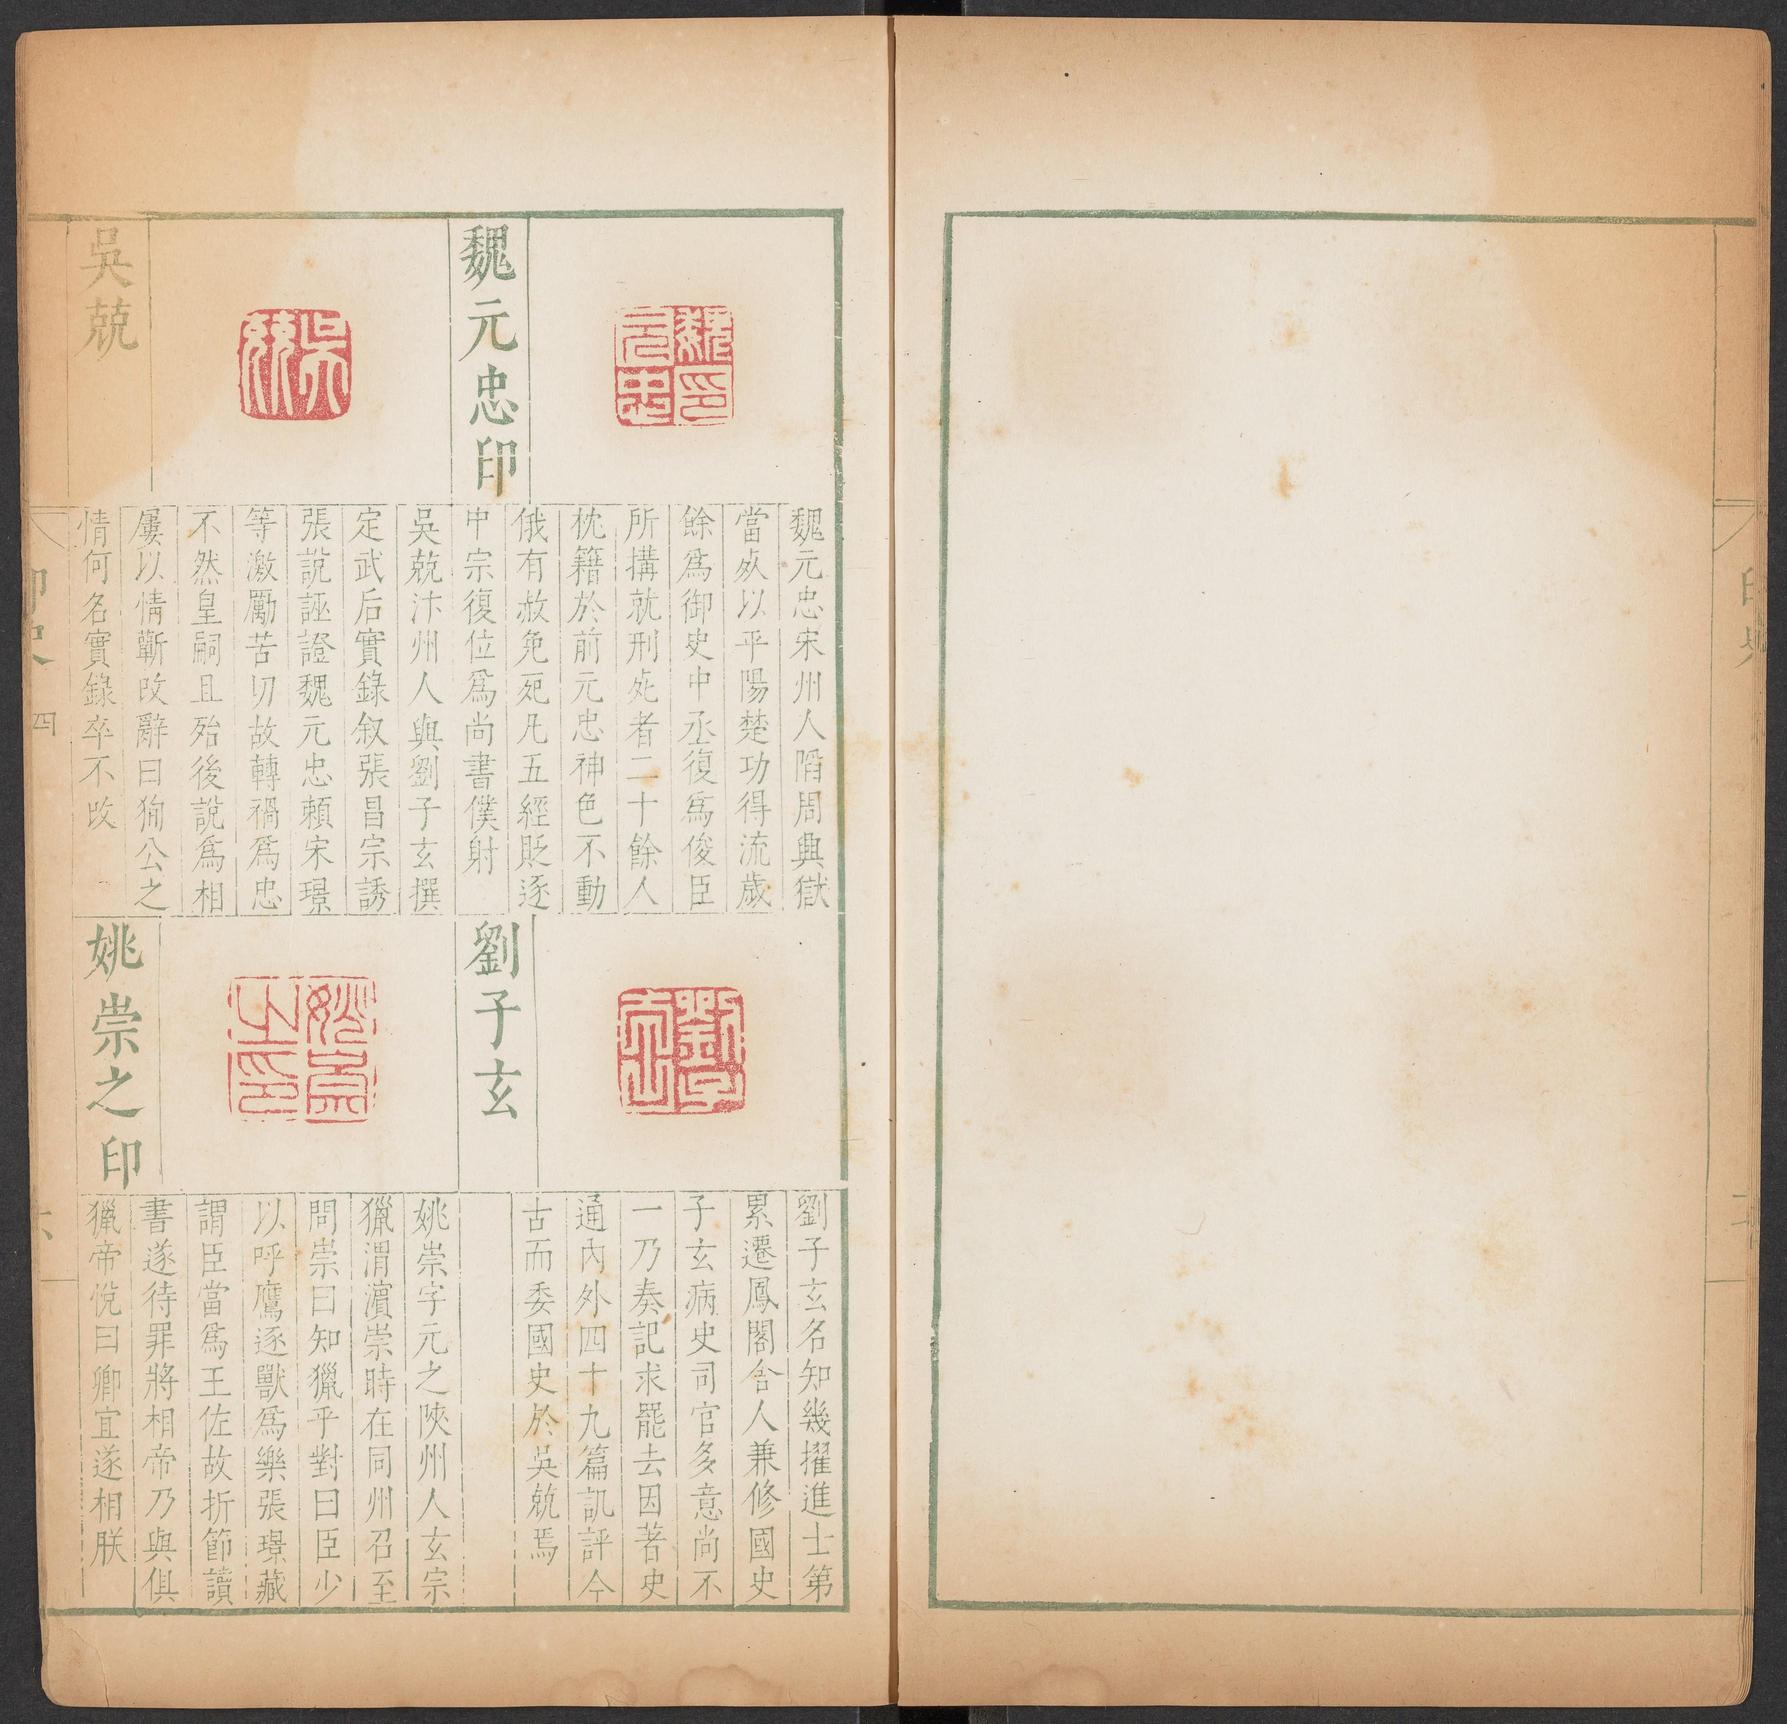 魏元忠印
魏元忠宋州人陷周興獄
當死以平陽楚功得流歲
餘爲御史中丞復爲俊臣
所搆就刑死者二十餘人
枕籍於前元忠神色不動
俄有赦免死凡五經貶逐
中宗復位爲尚書僕射
吳兢
吳兢汴州人與劉子玄撰
定武后實錄叙張昌宗誘
張說誣證魏元忠頼宋璟
等激勵苦切故轉禍爲忠
不然皇嗣且殆後說爲相
屢以情蘄改辭曰狥公之
情何名實錄卒不改
劉子玄
劉子玄名知幾擢進士第
累遷鳳閣舍人兼修國史
子玄病史司官多意尚不
一乃奏記求罷去因著史
通內外四十九篇訊評今
古而委國史於吳兢焉
姚崇之印
姚崇字元之陝州人玄宗
獵渭濵崇時在同州召至
問崇曰知獵乎對曰臣少
以呼鷹逐獸爲樂張璟藏
謂臣當爲王佐故折節讀
書遂待罪將相帝乃與俱
獵帝悅曰卿宜遂相朕